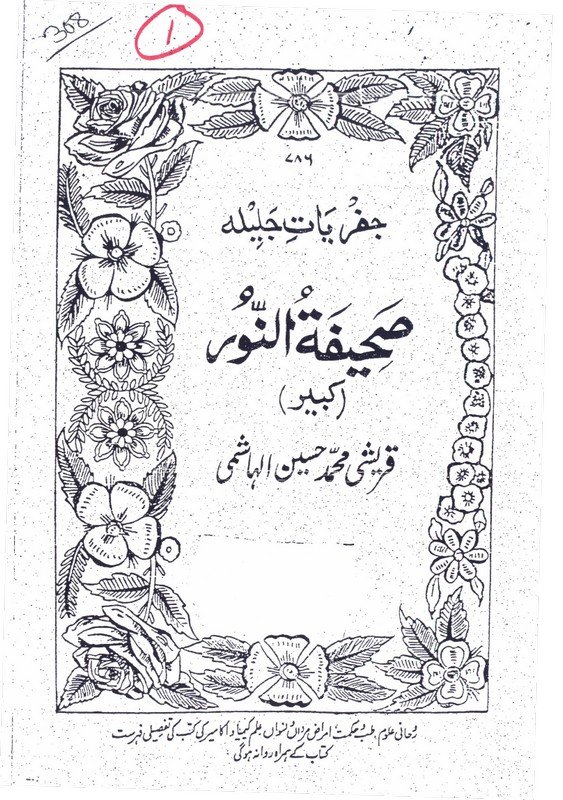 308
1
۷۸۶
جفریاتِ جَلِیْلہ
صَحِیفَۃُ النُّورُ
(کبیر)
قریشی محمّد حسین الہاشمی
رُحانی علوم، طب حکمت امراض مرداں و نسواں علم کیمیا و اکاسیر کی کتب کی تفصیلی فہرست
کتاب کے ہمراہ روانہ ہوگی